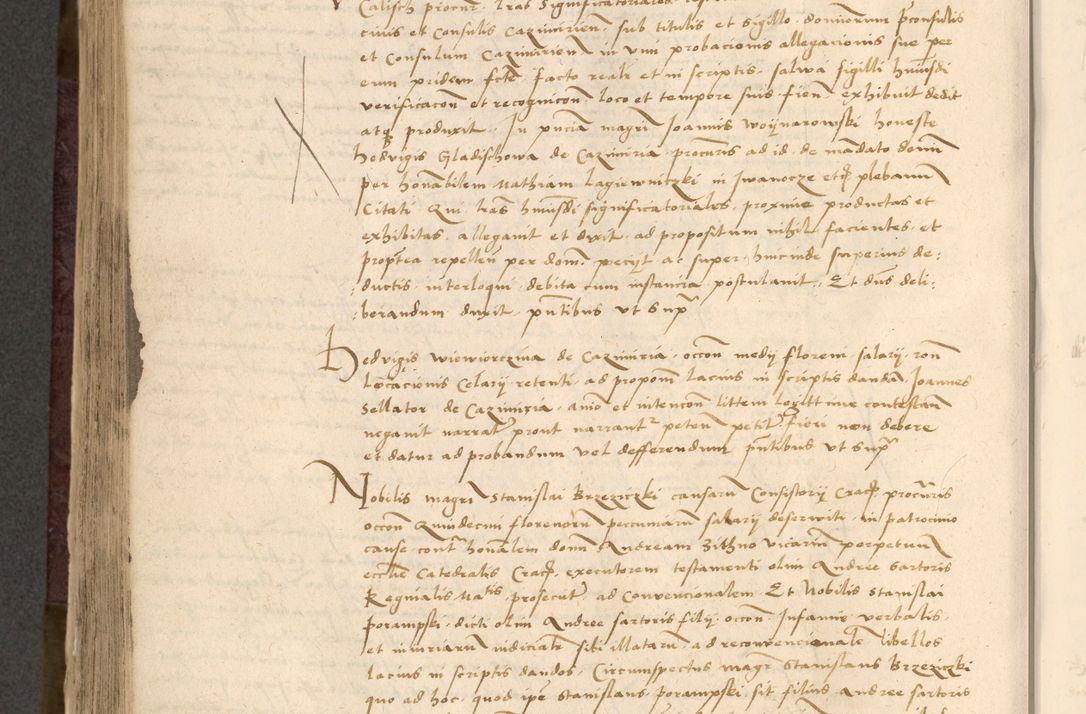 Calisch procur. lras significatoriales
ciuis et Consulis Cazimirien. sub titulis et sigillo dominorum pconsulis
et Consulum Cazimirien in vim probacionis allegacionis sue per
eum pridem fcte facto reali et in scriptis, salwa sigilli hmoi
verificacon et recognicon. loco et tempore suis fien. exhibuit dedit
atq produxit. In pncia magri Joannis Woijnarowski honeste
hedvigis Gladischowa de Cazimiria procuris ad id de mandato domini
per honabilem Mathiam Lagiewniczki in Iwanocze etc plebanum
Citati. Qui lras hmoi significatoriales proxime productas et
exhibitas, allegauit et dixit ad propositum nihil facientes et
proptea repellen per dom. peciit ac super hincinde superius de:
:ductis interloqui debita cum instancia postulauit. Et dns deli:
:berandum duxit, pntibus vt supra
Hedvigis Wiewiorczina de Cazimiria, occon medij floreni salarij ron
Locacionis Celarij retenti, ad propon lacius in scriptis dandam, Joannes
Sellator de Cazimiria, animo et intencon littem legittime contestan
negauit narrata prout narrantur peten petitur fieri non debere
et datur ad probandum vel defferendum pntibus vt supra
Nobilis magri Stanislai Brzeziczki causarum Consistorij Crac procuris
occon Quindecim florenorum pecuniarum salarij deserwiti in patrocinio
cause contra honalem domin Andream Zithno vicarium perpetuum
ecclie Catedralis Crac. executorem testamenti olim Andree sartoris
Regnialis Matis, prosecutr ad Convencionalem. Et Nobilis Stanislai
Porampski dicti olim Andree sartoris filij, occon. Infamie verbalis
et iniuriarum iudicialr sibi illatarum, ad reconvencionale libellos
lacius in scriptis dandos, Circumspectus magr Stanislaus Brzeziczki
quo ad hoc, quod ipse Stanislaus Porampski sit filius Andree sartoris